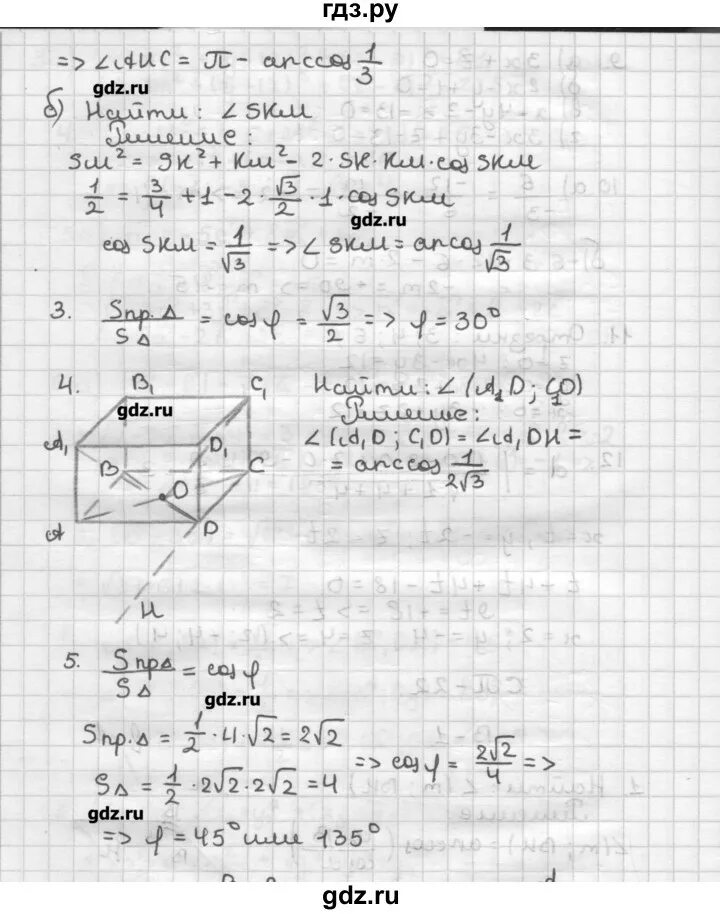 гдз.ру
=> ∠AMC = π - arccos 1/3
gdz.ru
б) Найти: ∠SKM
Решение:
SM² = SK² + KM² - 2·SK·KM·cos SKM
1/2 = 3/4 + 1 - 2·√3/2·1·cos SKM
gdz.ru
cos SKM = 1/√3 => ∠SKM = arccos 1/√3
3. Sпр.Δ/SΔ = cos φ = √3/2 => φ = 30°
4. B₁ C₁ Найти: ∠(A₁D; C₁O)
gdz.ru
Решение:
A₁ D₁ ∠(A₁D; C₁O) = ∠A₁DH =
B C = arccos 1/2√3
O
A D
H
5. SпрΔ/SΔ = cos φ
gdz.ru
Sпр.Δ = 1/2·4·√2 = 2√2
=> cos φ = 2√2/4 =>
SΔ = 1/2·2√2·2√2 = 4
gdz.ru
=> φ = 45° или 135°
gdz.ru